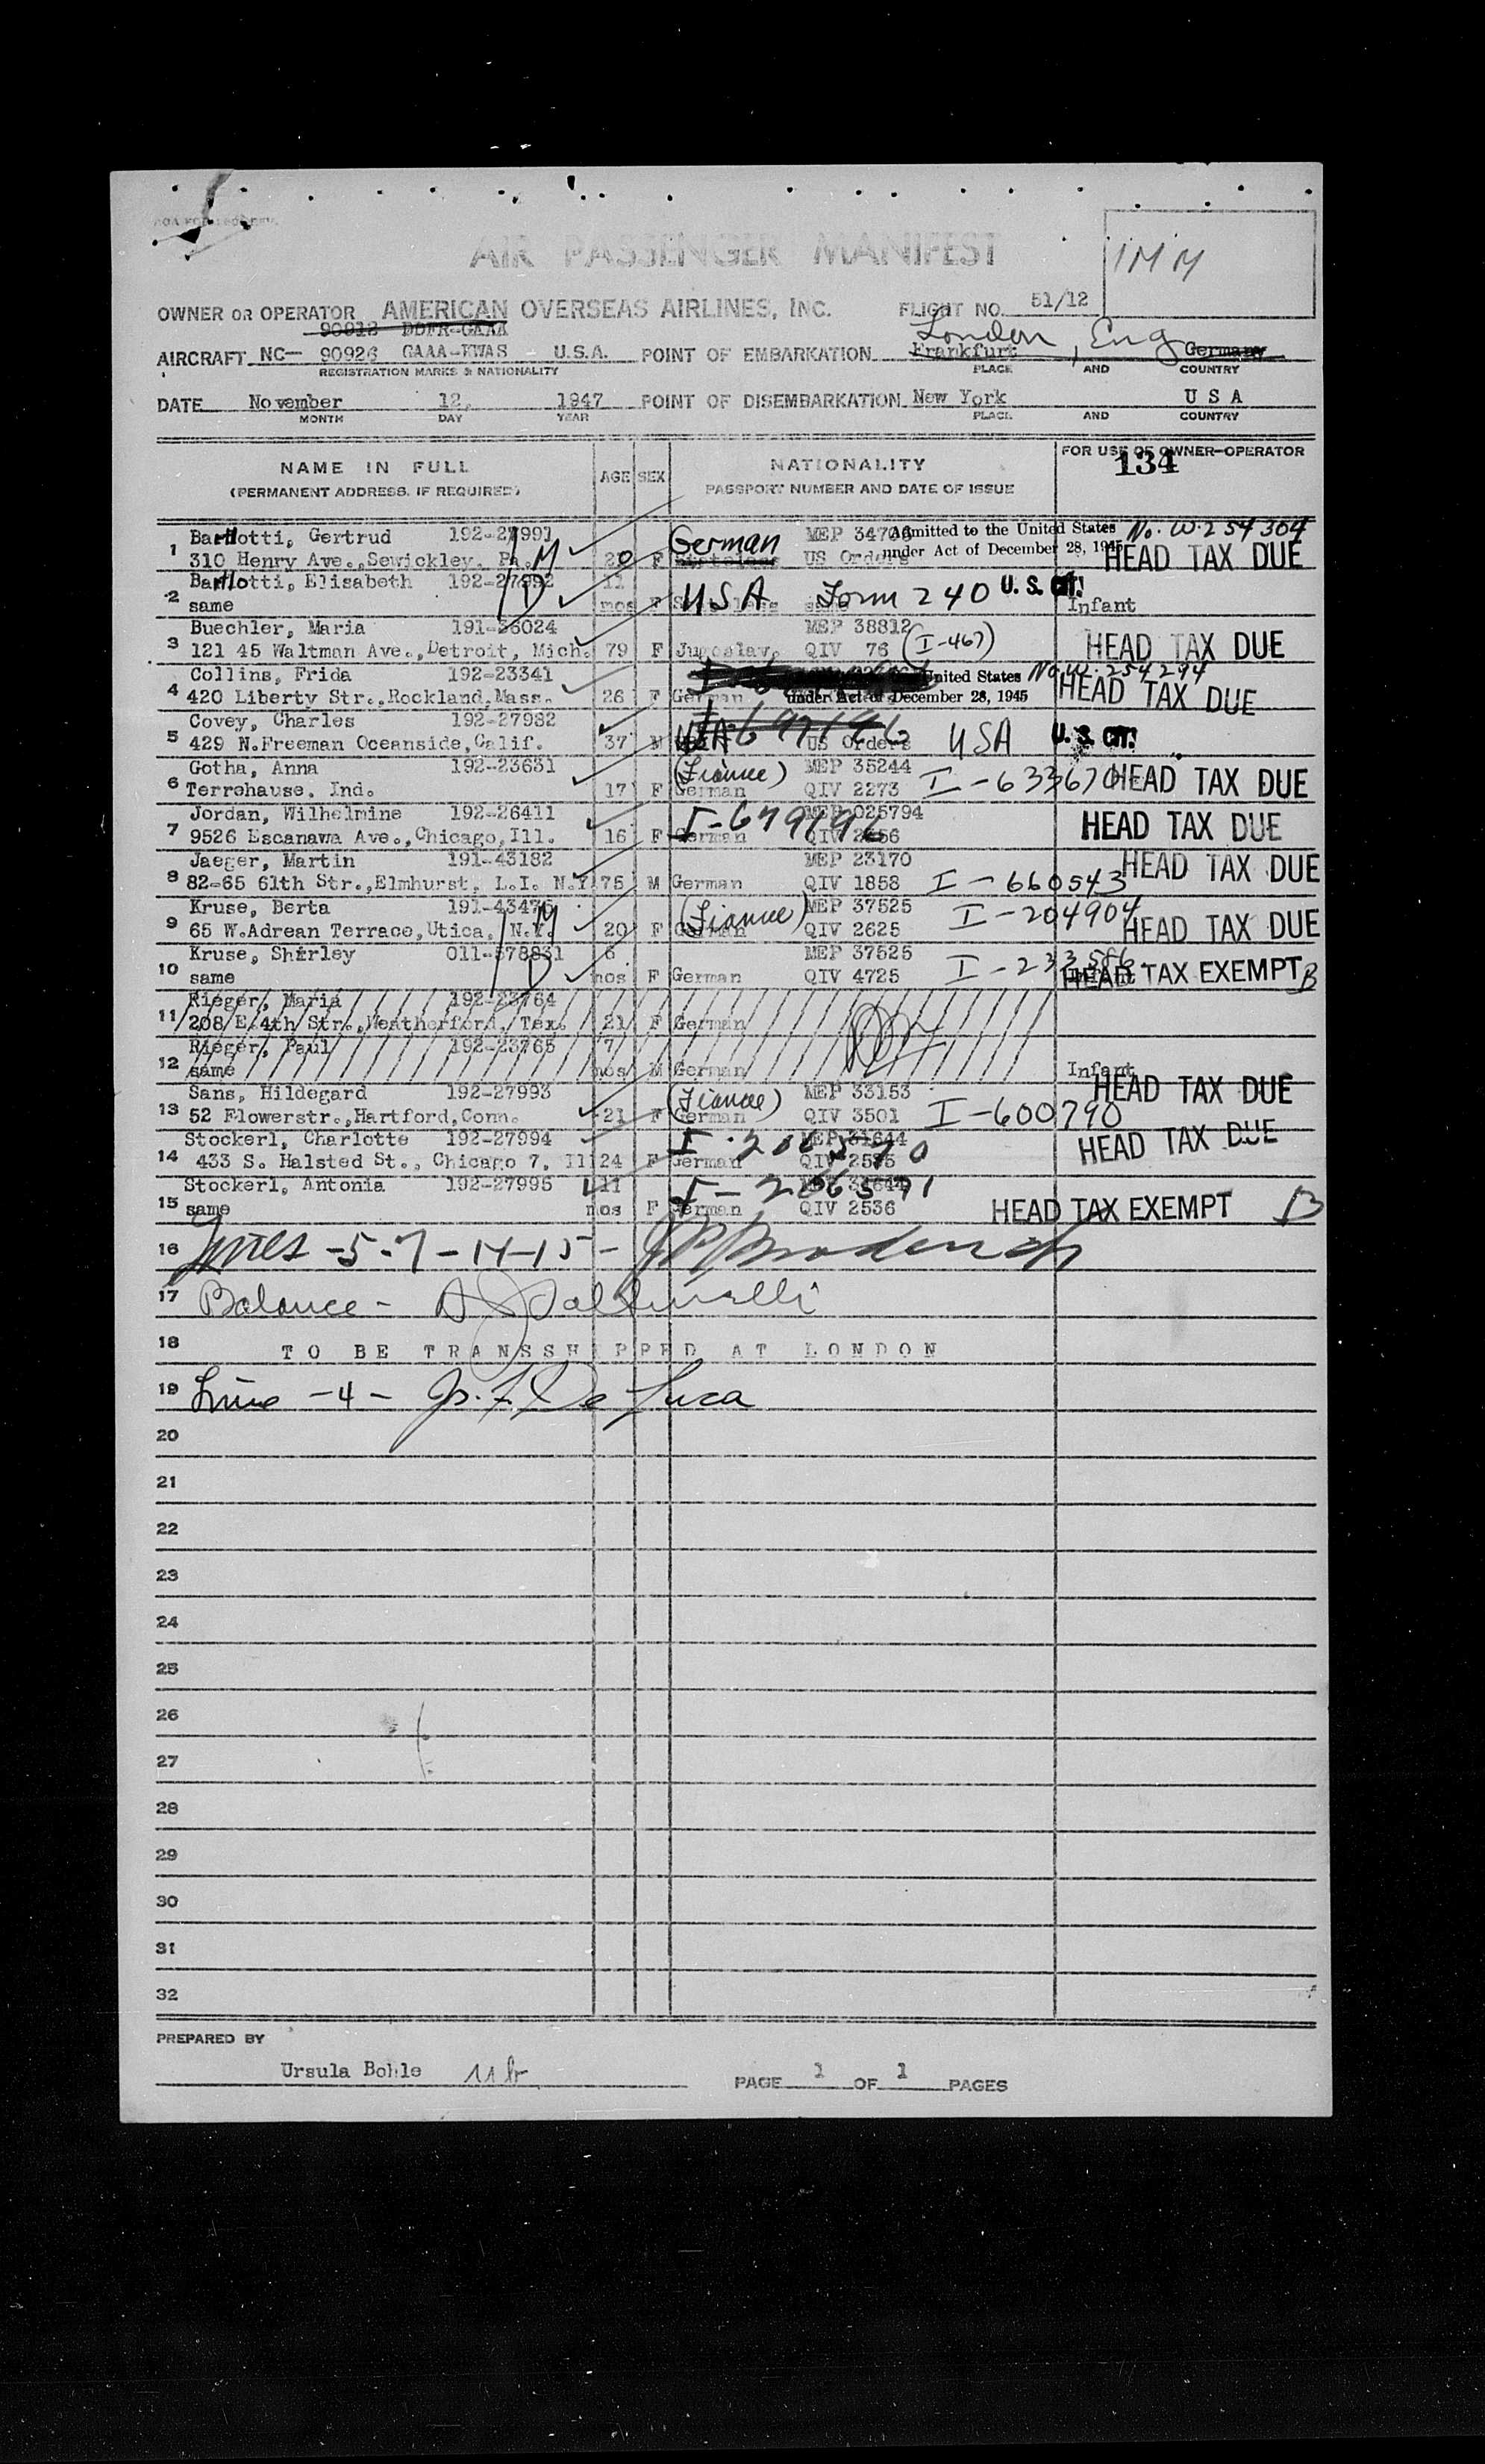 AIR PASSENGER MANIFEST
IMM
OWNER OR OPERATOR AMERICAN OVERSEAS AIRLINES, INC. FLIGHT NO. 51/12
90912 DDFR-GAAA
London, Eng
AIRCRAFT NC— 90926 GAAA-KWAS U.S.A. POINT OF EMBARKATION Frankfurt Germany
REGISTRATION MARKS & NATIONALITY PLACE AND COUNTRY
DATE November 12, 1947 POINT OF DISEMBARKATION New York U S A
MONTH DAY YEAR PLACE AND COUNTRY
NAME IN FULL
(PERMANENT ADDRESS, IF REQUIRED)
AGE SEX
NATIONALITY
PASSPORT NUMBER AND DATE OF ISSUE
FOR USE OF OWNER-OPERATOR
134
Bartlotti, Gertrud 192-27991 German MEP 34706 Admitted to the United States No. W.254304
1 310 Henry Ave., Sewickley, Pa. M 20 F US Orders under Act of December 28, 1945 HEAD TAX DUE
Bartlotti, Elisabeth 192-27992 11
2 same D mos F USA Form 240 U. S. CIT! Infant
Buechler, Maria 191-36024 MEP 38812
3 121 45 Waltman Ave., Detroit, Mich. 79 F Jugoslav. QIV 76 (I-467) HEAD TAX DUE
Collins, Frida 192-23341 United States No. W. 254294
4 420 Liberty Str., Rockland, Mass. 26 F German under Act of December 28, 1945 HEAD TAX DUE
Covey, Charles 192-27982
5 429 N. Freeman Oceanside, Calif. 37 M USA US Orders USA U. S. CIT!
Gotha, Anna 192-23631 (Fiancee) MEP 35244
6 Terrehause, Ind. 17 F German QIV 2273 I-633670 HEAD TAX DUE
Jordan, Wilhelmine 192-26411 MEP 025794
7 9526 Escanawa Ave., Chicago, Ill. 16 F German I-679196 HEAD TAX DUE
Jaeger, Martin 191-43182 MEP 23170
8 82-65 61th Str., Elmhurst, L.I. N.Y. 75 M German QIV 1858 I-660543 HEAD TAX DUE
Kruse, Berta 191-43476 (Fiancee) MEP 37525
9 65 W. Adrean Terrace, Utica, N.Y. M 20 F German QIV 2625 I-204904 HEAD TAX DUE
Kruse, Shirley 011-578831 6 MEP 37525
10 same D mos F German QIV 4725 I-233586 HEAD TAX EXEMPT B
Rieger, Maria 192-23764
11 208 E. 4th Str., Weatherford, Tex. 21 F German
Rieger, Paul 192-23765 7
12 same mos M German Infant
Sans, Hildegard 192-27993 (Fiancee) MEP 33153
13 52 Flowerstr., Hartford, Conn. 21 F German QIV 3501 I-600790 HEAD TAX DUE
Stockerl, Charlotte 192-27994 MEP 31644
14 433 S. Halsted St., Chicago 7, Ill 24 F German QIV 2535 HEAD TAX DUE
Stockerl, Antonia 192-27995 11
15 same mos F German QIV 2536 HEAD TAX EXEMPT B
16 Lines -5-7-14-15-
17 Balance -
18 TO BE TRANSSHIPPED AT LONDON
19 Line -4- J. F. De Luca
20
21
22
23
24
25
26
27
28
29
30
31
32
PREPARED BY
Ursula Bohle ub
PAGE 1 OF 1 PAGES